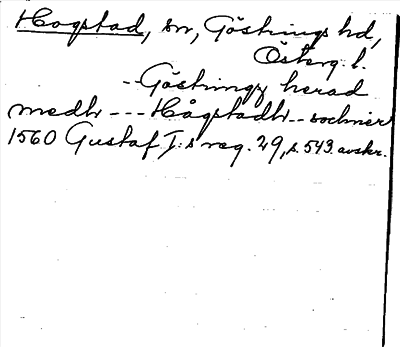 Hogstad, sn, Göstrings hd,
Österg. l.
-- Göstringz herad
medh --- Hågstadh -- sochner
1560 Gustaf I:s reg. 29, s. 543. avskr.